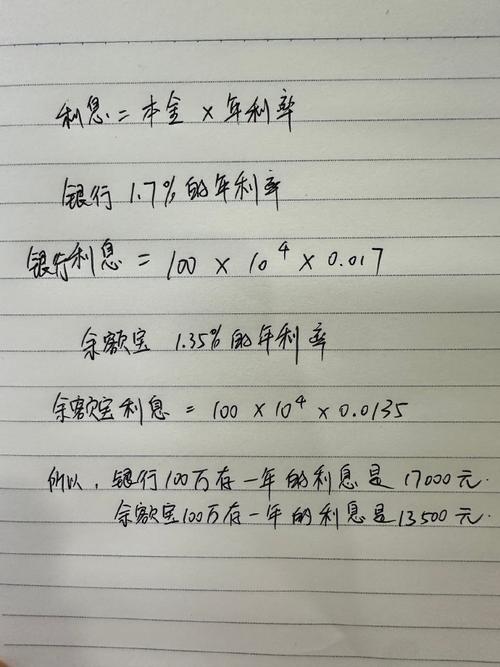 利息 = 本金 × 年利率
银行 1.7% 的年利率
银行利息 = 100 × 10⁴ × 0.017
余额宝 1.35% 的年利率
余额宝利息 = 100 × 10⁴ × 0.0135
所以, 银行100万存一年的利息是 17000元.
余额宝100万存一年的利息是13500元.